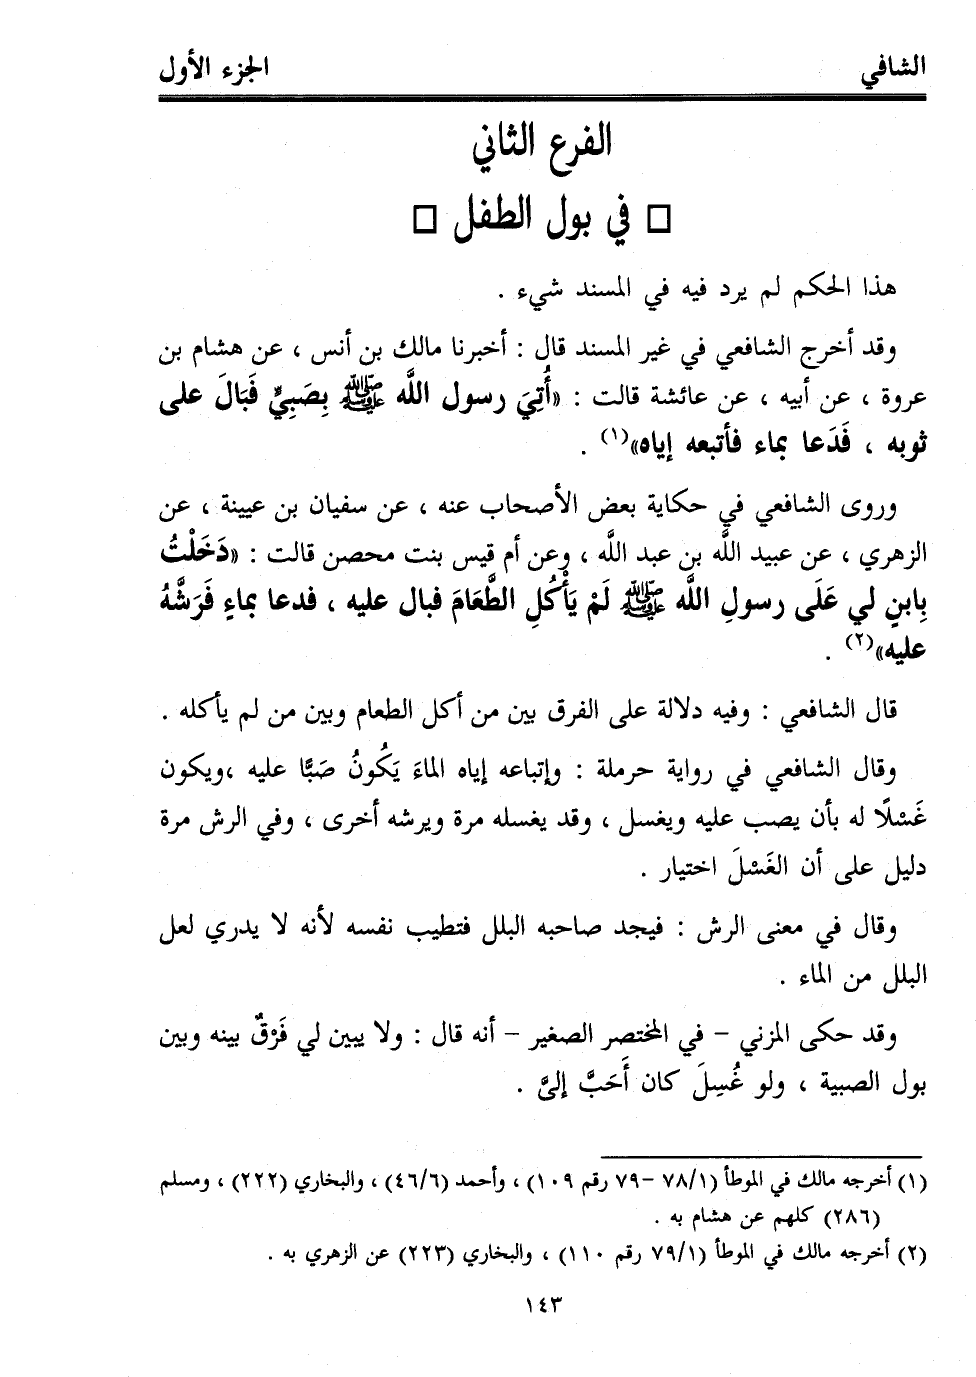 الشافي
الجزء الأول
الفرع الثاني
□ في بول الطفل □
هذا الحكم لم يرد فيه في المسند شيء .
وقد أخرج الشافعي في غير المسند قال : أخبرنا مالك بن أنس ، عن هشام بن
عروة ، عن أبيه ، عن عائشة قالت : «أُتِيَ رسول اللَّه ﷺ بِصَبِيٍّ فَبَالَ على
ثوبه ، فَدَعا بماء فأتبعه إياه»(١) .
وروى الشافعي في حكاية بعض الأصحاب عنه ، عن سفيان بن عيينة ، عن
الزهري ، عن عبيد اللَّه بن عبد اللَّه ، وعن أم قيس بنت محصن قالت : «دَخَلْتُ
بِابنٍ لي عَلَى رسولِ اللَّه ﷺ لَمْ يَأْكُلِ الطَّعَامَ فبال عليه ، فدعا بماءٍ فَرَشَّهُ
عليه»(٢) .
قال الشافعي : وفيه دلالة على الفرق بين من أكل الطعام وبين من لم يأكله .
وقال الشافعي في رواية حرملة : وإتباعه إياه الماءَ يَكُونُ صَبًّا عليه ،ويكون
غَسْلًا له بأن يصب عليه ويغسل ، وقد يغسله مرة ويرشه أخرى ، وفي الرش مرة
دليل على أن الغَسْلَ اختيار .
وقال في معنى الرش : فيجد صاحبه البلل فتطيب نفسه لأنه لا يدري لعل
البلل من الماء .
وقد حكى المزني – في المختصر الصغير – أنه قال : ولا يبين لي فَرْقٌ بينه وبين
بول الصبية ، ولو غُسِلَ كان أَحَبَّ إليَّ .
(١) أخرجه مالك في الموطأ (٧٨/١ –٧٩ رقم ١٠٩) ، وأحمد (٤٦/٦) ، والبخاري (٢٢٢) ، ومسلم
(٢٨٦) كلهم عن هشام به .
(٢) أخرجه مالك في الموطأ (٧٩/١ رقم ١١٠) ، والبخاري (٢٢٣) عن الزهري به .
١٤٣